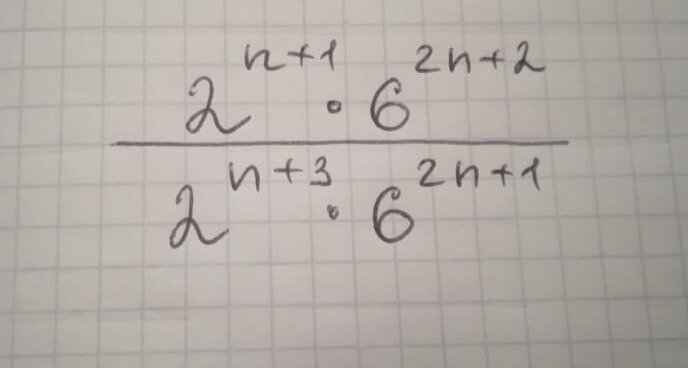 2^{n+1} · 6^{2n+2}
2^{n+3} · 6^{2n+1}